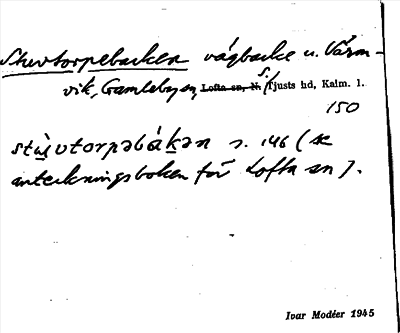 Stuvtorpebacken vägbacke u. Värm-
vik, Gamleby sn, Lofta sn, N. S. Tjusts hd, Kalm. l.
150
s. 146 (se
anteckningsboken för Lofta sn).
Ivar Modéer 1945